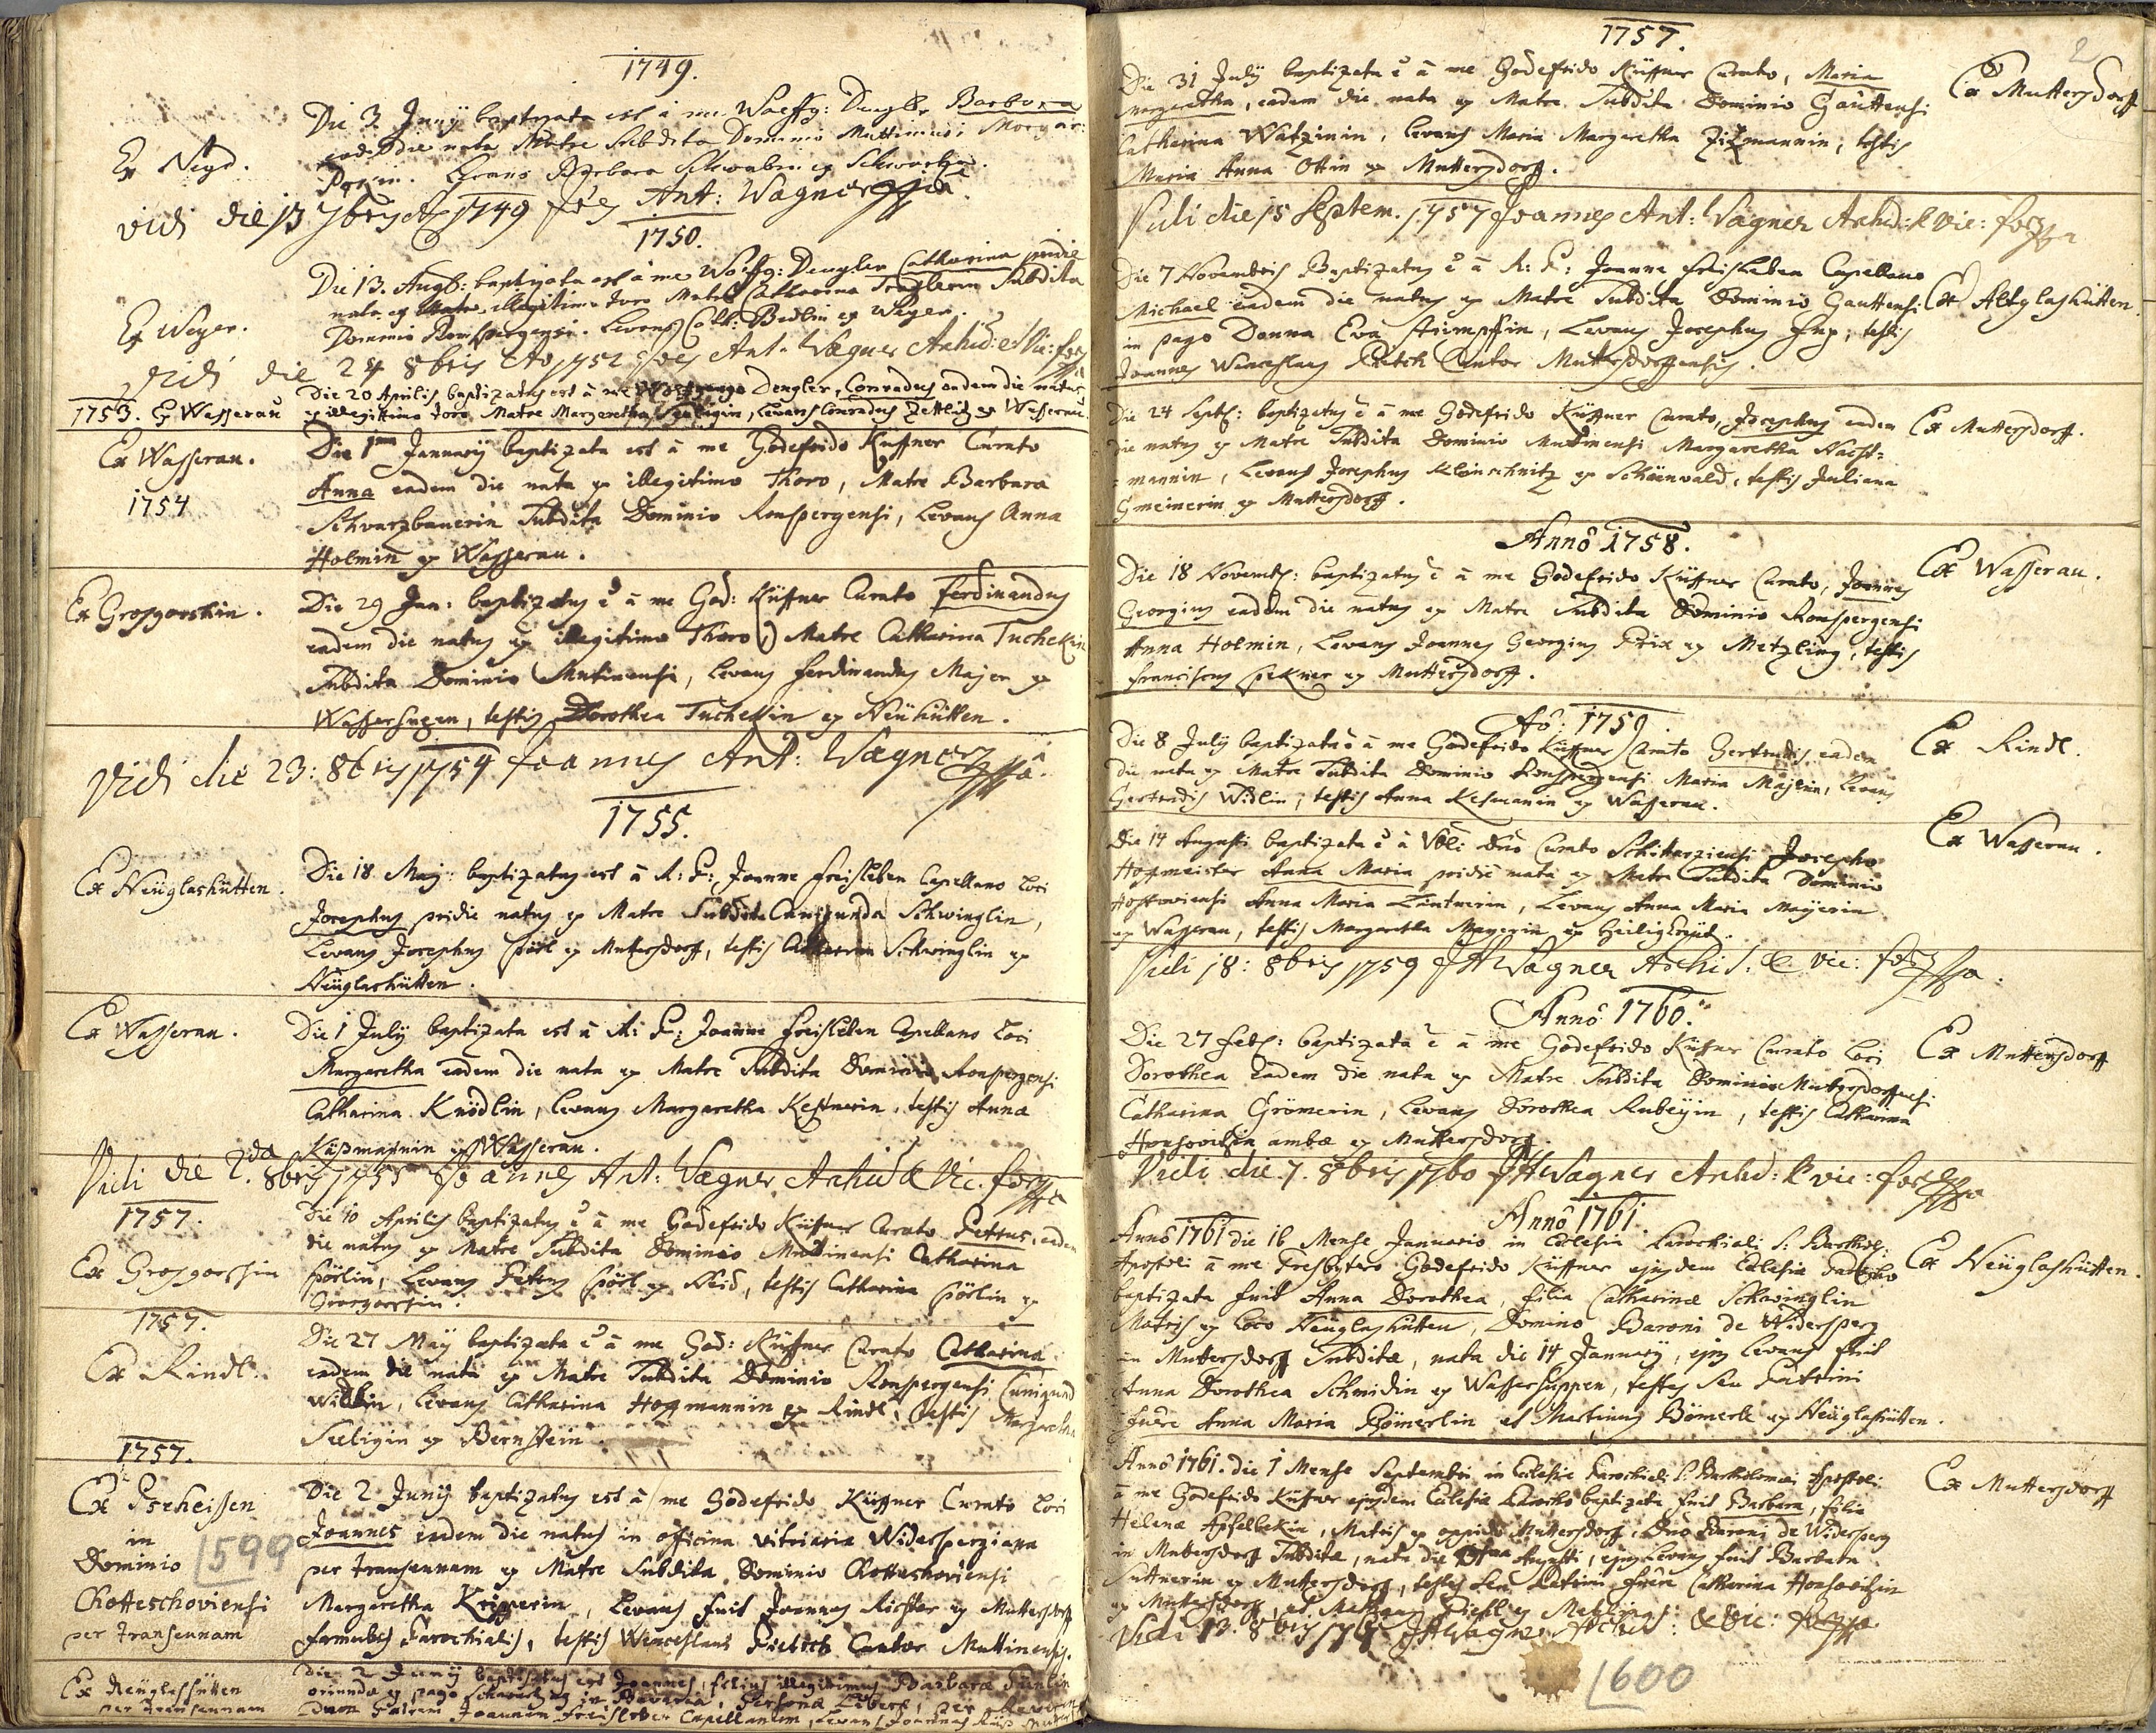 1749.
Die 3 Junij baptizata est à me Wolffg: Dengler Barbora
eadem die nata Matre Subdita Dominio Muttinensi Margar:
Ex Neyd.
Levans Barbara Schwabin ex Schwartza.
vidi die 13 7bris Ao 1749 Jões Ant: Wagner mppa
1750.
Die 13. Augst: baptizata est à me Wolffg: Dengler Catharina pridie
nata ex illegitimo toro Matre Catharina Subdita
Ex Weyer.
Dominio Ronspergensi. Levans Cath: Bedlin ex Weyer.
Vidi die 24 8bris Ao 1752 Jões Ant. Wagner Archid: et Vic: for:
Die 20 Aprilis baptizatus est à me Wolffgango Dengler, Conradus eadem die natus
1753. Ex Wasserau
ex illegittimo toro, Matre Margaretha Seeligin, Levans Conradus Zettlitz ex Wasserau.
Ex Wasserau.
1754
Die 1ma Januarij baptizata est à me Godefrido Küffner Curato
Anna eadem die nata ex illegitimo Thoro, Matre Barbara
Schwarzbauerin Subdita Dominio Ronspergensi, Levans Anna
Holmin ex Wasserau.
Ex Grosgorshin.
Die 29 Jan: baptizatus ē à me God: Küffner Curato Ferdinandus
eadem die natus ex illegitimo Thoro, Matre Catharina Tuchekin
Subdita Dominio Mutinensi, Levans Ferdinandus Majer ex
Wassersuppen, testis Dorothea Tuchekin ex Neuhütten.
Vidi die 23: 8bris 1754 Joannes Ant: Wagner mppa.
1755.
Ex Neüglashütten.
Die 18 Maij: baptizatus est à R: P: Joanne Freisleben Capellano Loci
Josephus pridie natus ex Matre Subdita Cunigunda Schwinglin,
Levans Josephus Pörl ex Muttersdorff, testis Catharina Schwinglin ex
Neüglashütten.
Ex Wasserau.
Die 1 Julij baptizata est à R: P: Joanne Freisleben Capellano Loci
Margaretha eadem die nata ex Matre Subdita Dominio Ronspergensi
Catharina Knödlin, Levans Margaretha Kestnerin, testis Anna
Küßmannin ex Wasserau.
Vidi die 2da 8bris 1755 Joannes Ant: Wagner Archid & Vic. for mppa
1757.
Ex Grosgorshin
Die 10 Aprilis baptizatus ē à me Godefrido Küffner Curato Petrus, eadem
die natus ex Matre Subdita Dominio Muttinensi Catharina
Pörlin, Levans Petrus Pörl ex Neid, testis Catharina Pörlin ex
Grosgorshin.
1757.
Ex Rindl.
Die 27 Maij baptizata ē à me God: Küffner Curato Catharina
eadem die nata ex Matre Subdita Dominio Ronspergensi Cunigund
Widlin, Levans Catharina Hoffmannin ex Rindl, testis Margaretha
Seeligin ex Bernstein.
1757.
Ex Pscheissen
in
Dominio
Chotteschoviensi
per transennam
1599
Die 2 Junij baptizatus est à me Godefrido Küffner Curato Loci
Joannes eadem die natus in officina vitriaria Widerspergiana
per transennam ex Matre Subdita Dominio Chotteschoviensi
Margaretha Kripperin, Levans fuit Joannes Richter ex Muttersdorff
famulus Parochialis, testis Wenceslaus Pietsch Cantor Muttinensis.
Ex Neüglashütten
per transennam
Die 2 Junij baptisatus est Joannes, filius illegitimus Barbara
oriunda ex pago in Bavaria, Persona Libera, per Reveren
dum Patrem Joannem Freisleben Capellanum, Levans Joannes
2
1757.
Die 31 Julij baptizata ē à me Godefrido Küffner Curato, Maria
Margaretha, eadem die nata ex Matre Subdita Dominio Gauttensi
Catharina Watzinin, Levans Maria Margaretha Zitzmannin, testis
Maria Anna Ottin ex Muttersdorff.
Ex Muttersdorff
Vidi die 15 Septem. 1757 Joannes Ant: Wagner Archid: & Vic: for mppa
Die 7 Novembris Baptizatus ē à R: P: Joanne Freisleben Capellano
Michael eadem die natus ex Matre Subdita Dominio Gauttensi
in pago Donna Eva Stumpffin, Levans Josephus Fux; testis
Joannes Wenceslaus Pietsch Cantor Muttersdorffensis.
Ex Altglashütten.
Die 24 Septs: baptizatus ē à me Godefrido Küffner Curato, Josephus eadem
die natus ex Matre Subdita Dominio Muttinensi Margaretha Nacht=
=mannin, Levans Josephus Kleinschnitz ex Schönwald, testis Juliana
Gmeinerin ex Muttersdorff.
Ex Muttersdorff.
Annô 1758.
Die 18 Novembs: baptizatus ē à me Godefrido Küffner Curato, Joannes
Georgius eadem die natus ex Matre Subdita Dominio Ronspergensi
Anna Holmin, Levans Joannes Georgius Prix ex Metzling, testis
Franciscus Pekner ex Muttersdorff.
Ex Wasserau.
Aô: 1759.
Die 8 Julij baptizata ē à me Godefrido Küffner Curato Gertrudis, eadem
die nata ex Matre Subdita Dominio Ronspergensi Maria Majerin, Levans
Gertrudis Widlin, testis Anna Kesmanin ex Wasserau.
Ex Rindl.
Die 14 Augusti baptizata ē à Vbli Dno Curato Schittarziensi Josepho
Hoffmeister Anna Maria pridie nata ex Matre Subdita Dominio
Hostoviensi Anna Maria Lintnerin, Levans Anna Maria Mayerin
ex Wasserau, testis Margaretha Mayerin ex Heiligkreütz.
Ex Wasserau.
Vidi 18: 8bris 1759 JAWagner Archid: & vic: for mppa.
Annô 1760.
Die 27 Febs: baptizata ē à me Godefrido Küffner Curato Loci
Dorothea eadem die nata ex Matre Subdita Dominio Muttersdorffensi
Catharina Grömerin, Levans Dorothea Rubeyin, testis Catharina
Honsovitzin ambæ ex Muttersdorff.
Ex Muttersdorff
Vidi die 7. 8bris 1760 JAWagner Archid: & vic: for mppa
Annô 1761.
Annô 1761 die 16 Mense Januario in Eclesia Parochiali S: Barthol:
Apostoli à me Presbytero Godefrido Küffner ejusdem Eclesiæ Parocho
baptizata fuit Anna Dorothea, filia Catharinæ Schwinglin
Matris ex Loco Neüglashütten, Domino Baroni de Widersperg
in Muttersdorff Subditæ, nata die 14 Januarij, ejus Levans fuit
Anna Dorothea Schmidin ex Wassersuppen, testes seu Patrini
fuêre Anna Maria Bömerlin et Martinus Bömerle ex Neüglashütten.
Ex Neüglashütten.
Annô 1761. die 1 Mense Septembri in Eclesia Parochiali S: Bartholomæi Apostoli
à me Godefrido Küffner ejusdem Eclesiæ Parocho baptizata fuit Barbara, filia
Helenæ Apfelbekin, Matris ex oppido Muttersdorff, Dno Baroni de Widersperg
in Muttersdorff Subditæ, nata die Augusti, ejus Levans fuit Barbara
Suttnerin ex Muttersdorff, testes seu Patrini fuêre Catharina Honsovitzin
ex Muttersdorff, et Mathæus ex Metzling.
Ex Muttersdorff
Vidi 13. 8bris 1761 JAWagner Archid: & Vic: for mppa
1600